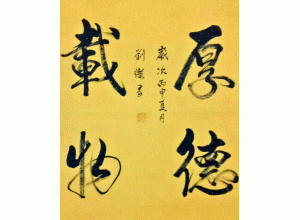 厚德
載物
歲次丙申夏月
劉